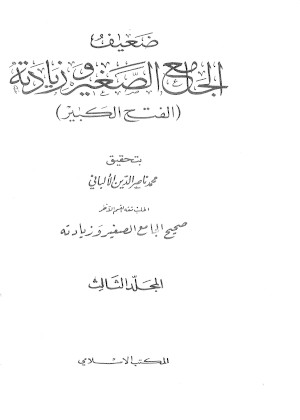 ضعيف
الجامع الصغير وزيادته
(الفتح الكبير)
بتحقيق
محمد ناصر الدين الألباني
اطلب تتمة القسم الآخر
صحيح الجامع الصغير وزيادته
المجلد الثالث
المكتب الإسلامي